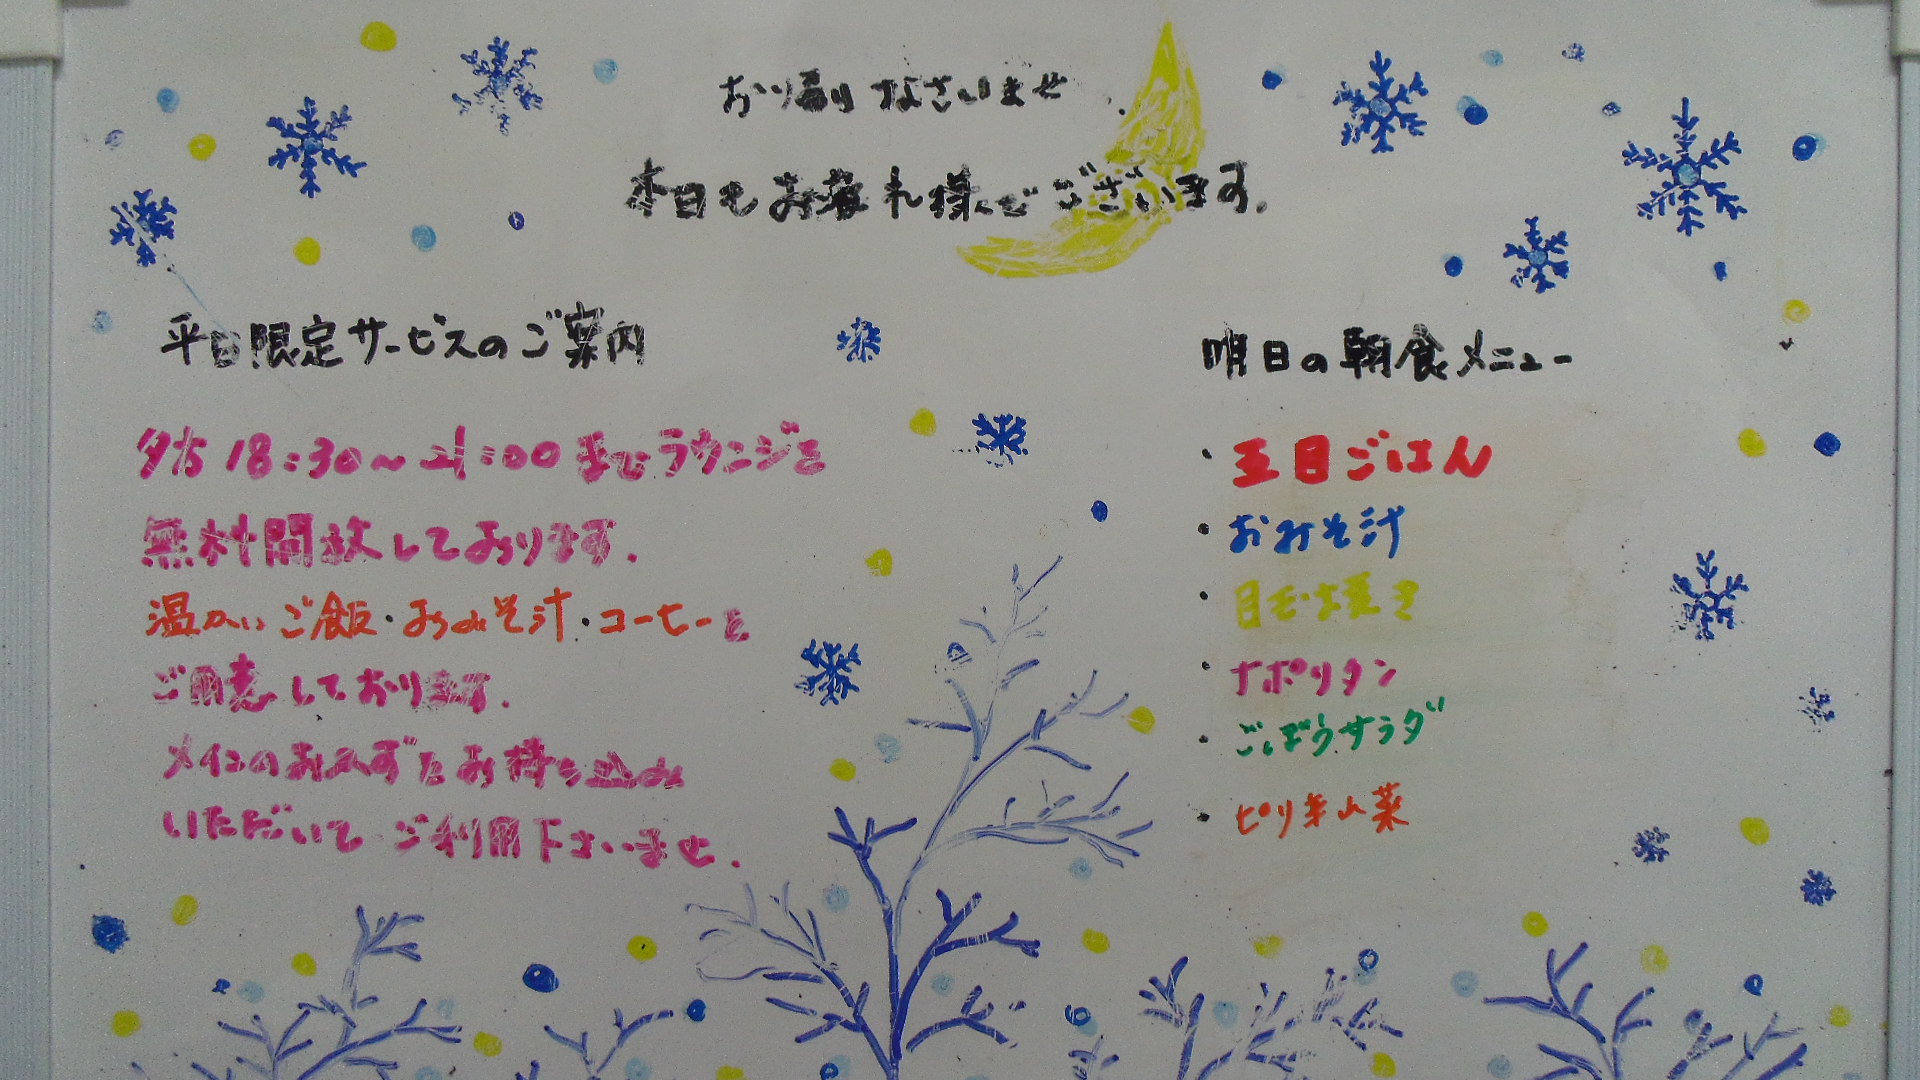 お帰りなさいませ
本日もお疲れ様でございます。
平日限定サービスのご案内
夕方18:30～21:00までラウンジを
無料開放しております。
温かいご飯・おみそ汁・コーヒーを
ご用意しております。
メインのおかずをお持ち込み
いただいてご利用下さいませ。
明日の朝食メニュー
・五目ごはん
・おみそ汁
・目玉焼き
・ナポリタン
・ごぼうサラダ
・ピリ辛山菜